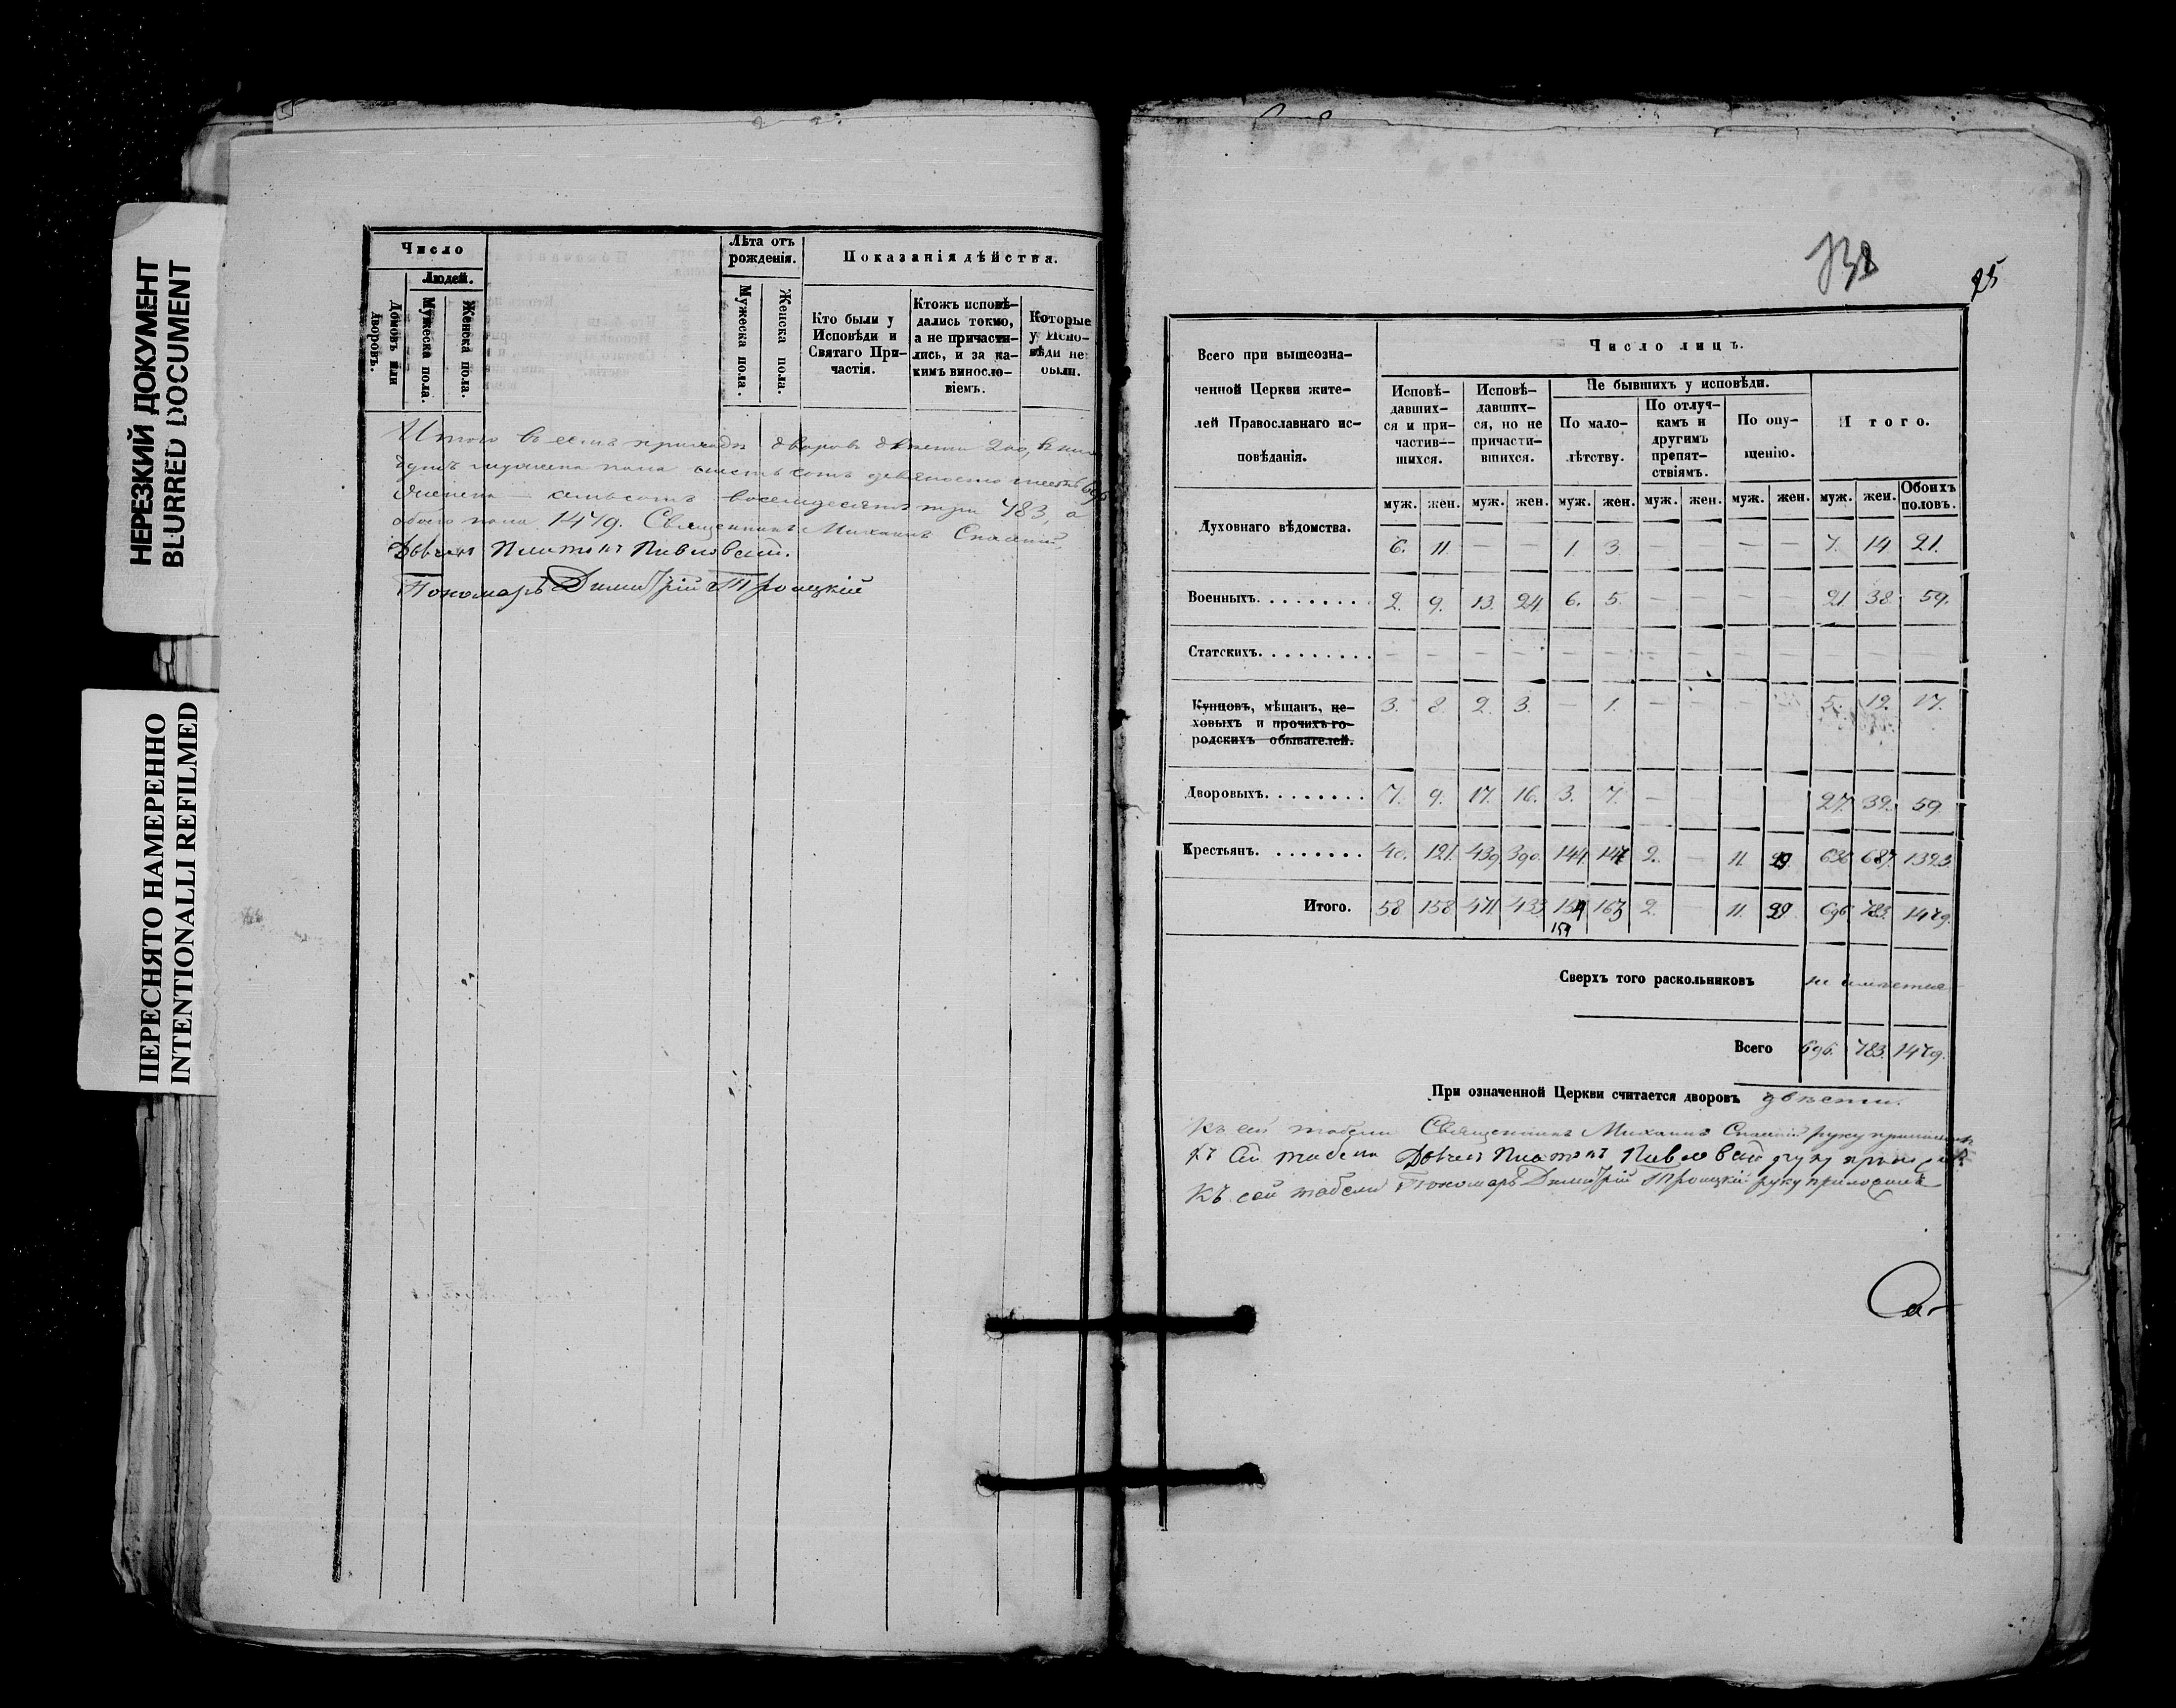 НЕРЕЗКИЙ ДОКУМЕНТ
BLURRED DOCUMENT
ПЕРЕСНЯТО НАМЕРЕННО
INTENTIONALLI REFILMED
Число
Людей.
Домовъ или дворовъ.
Мужеска пола.
Женска пола.
Лѣта отъ рожденія.
Мужеска пола.
Женска пола.
Показанія дѣйства.
Кто были у Исповѣди и Святаго Причастія.
Ктожъ исповѣдались токмо, а не причастились, и за какимъ винословіемъ.
Которые у Исповѣди не были.
Итого во всемъ приходѣ дворовъ двѣсти 200, в нихъ
душъ мужеска пола шестьсотъ девяносто шесть 696
женска — семьсотъ восемдесятъ три 783, а
обоего пола 1479. Священникъ Михаилъ Спасскій,
Дьячекъ Платонъ Павловскій.
Пономарь Димитрій Троицкій
138
25
Всего при вышеозначенной Церкви жителей Православнаго исповѣданія.
Число лицъ.
Исповѣдавшихся и причастившихся.
Исповѣдавшихся, но не причастившихся.
Не бывшихъ у исповѣди.
По малолѣтству.
По отлучкамъ и другимъ препятствіямъ.
По опущенію.
Итого.
муж. жен. муж. жен. муж. жен. муж. жен. муж. жен. муж. жен. Обоихъ половъ.
Духовнаго вѣдомства. 6. 11. — — 1. 3. — — — — 7. 14. 21.
Военныхъ. . . . . . . . 2. 9. 13. 24 6. 5. — — — — 21. 38. 59.
Статскихъ. . . . . . . . . — — — — — — — — — — — — —
Купцовъ, мѣщанъ, цеховыхъ и прочихъ городскихъ обывателей. 3. 8. 2. 3. — 1. — — — — 5. 12. 17.
Дворовыхъ. . . . . . . . 7. 9. 17. 16. 3. 7. — — — — 27. 32. 59.
Крестьянъ. . . . . . . . 40. 121. 439 390. 144. 147 2. — 11. 29. 636 687. 1323
Итого. 58 158 471. 433 154 163 2. — 11. 29. 696 783. 1479.
154
Сверхъ того раскольниковъ не имѣется
Всего 696. 783. 1479.
При означенной Церкви считается дворовъ двѣсти.
Къ сей табели Священникъ Михаилъ Спасскій руку приложилъ
Къ сей табели Дьячекъ Платонъ Павловскій руку приложилъ
Къ сей табели Пономарь Димитрій Троицкій руку приложилъ